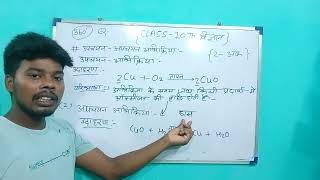 CLASS-10TH विज्ञान
# उपचयन-अपचयन अभिक्रिया-
{2-अंक}
उपचयन-अभिक्रिया-
उदाहरण
2Cu + O₂ ताप→ 2CuO
अभिक्रिया के समय जब किसी पदार्थ में
ऑक्सीजन की वृद्धि होती है
(2) अपचयन अभिक्रिया- ह्रास
उदाहरण-
CuO + H₂ Cu + H₂O